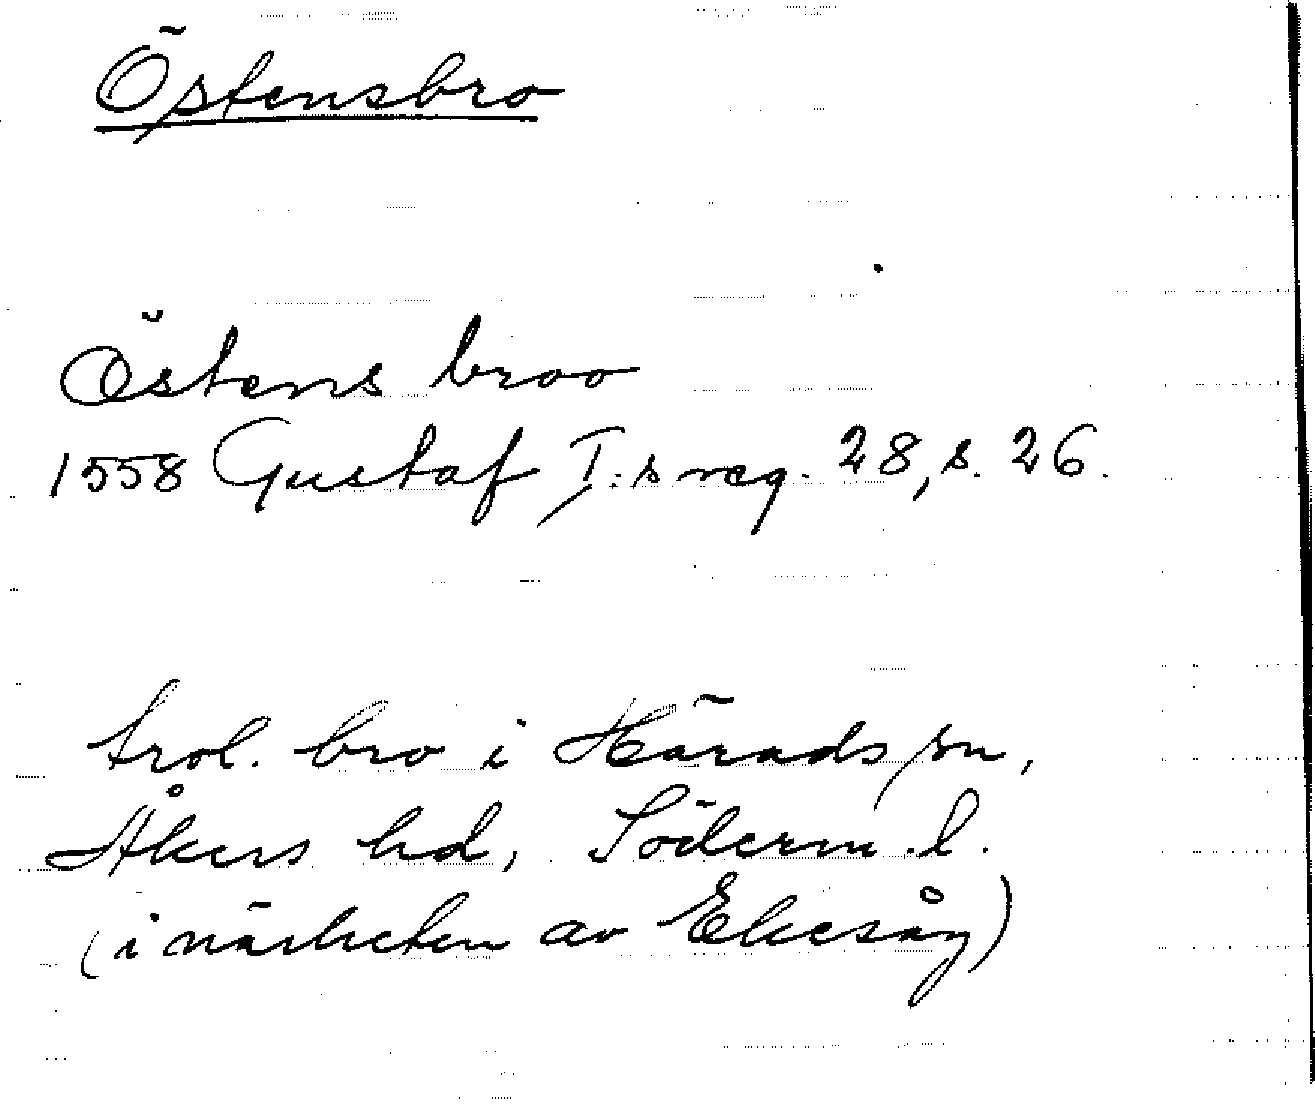 Östensbro
Östens broo
1558 Gustaf I:s reg. 28, s. 26.
trol. bro i Härads sn,
Åkers hd, Söderm. l.
(i närheten av Ekesåg)